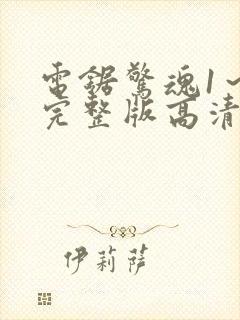 電鋸驚魂1~
完整版高清
伊莉薩